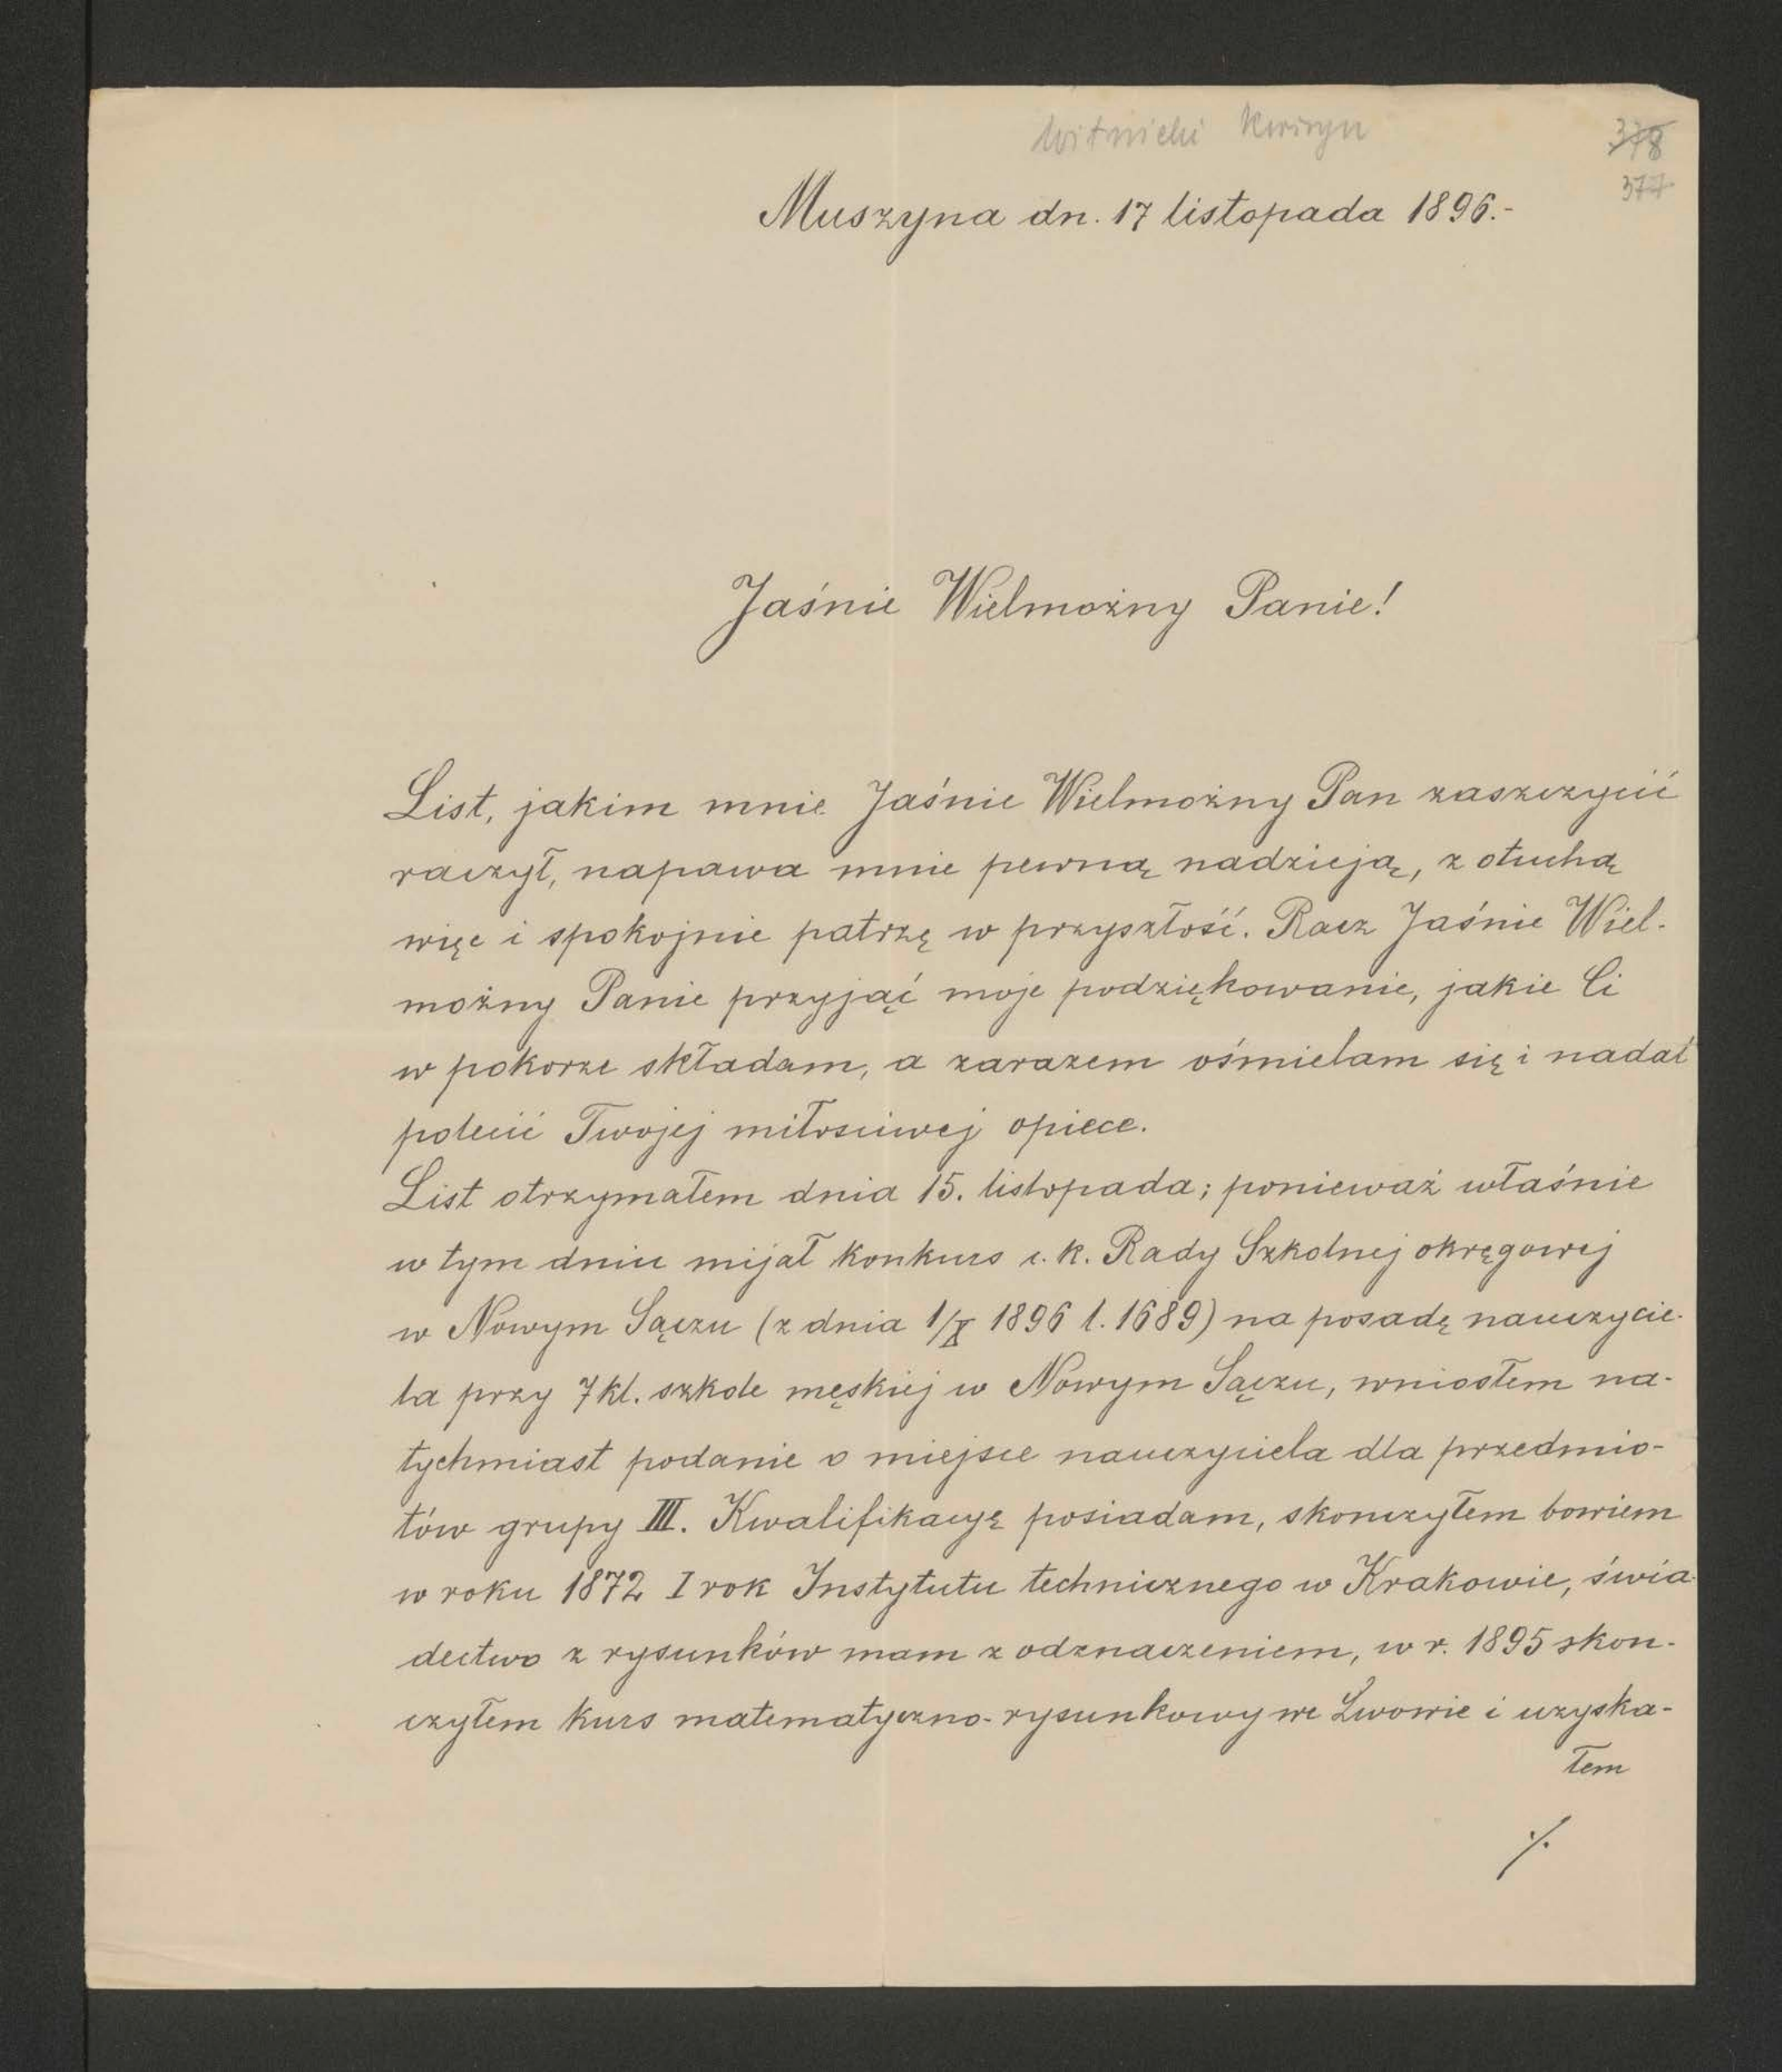 Witnicki Kwiryn
378
377
Muszyna dn. 17 listopada 1896.-
Jaśnie Wielmożny Panie!
List, jakim mnie Jaśnie Wielmożny Pan zaszczycić
raczył, napawa mnie pewną nadzieją, z otuchą
więc i spokojnie patrzę w przyszłość. Racz Jaśnie Wiel-
możny Panie przyjąć moje podziękowanie, jakie Ci
w pokorze składam, a zarazem ośmielam się i nadal
polecić Twojej miłosciwej opiece.
List otrzymałem dnia 15. listopada; ponieważ właśnie
w tym dniu mijał konkurs c. k. Rady Szkolnej okręgowej
w Nowym Sączu (z dnia 1/X 1896 l. 1689) na posadę nauczycie-
la przy 7 kl. szkole męskiej w Nowym Sączu, wniosłem na-
tychmiast podanie o miejsce nauczyciela dla przedmio-
tów grupy III. Kwalifikacyę posiadam, skonczyłem bowiem
w roku 1872 I rok Instytutu technicznego w Krakowie, świa-
dectwo z rysunków mam z odznaczeniem, w r. 1895 skon-
czyłem kurs matematyczno-rysunkowy we Lwowie i uzyska-
łem
./.